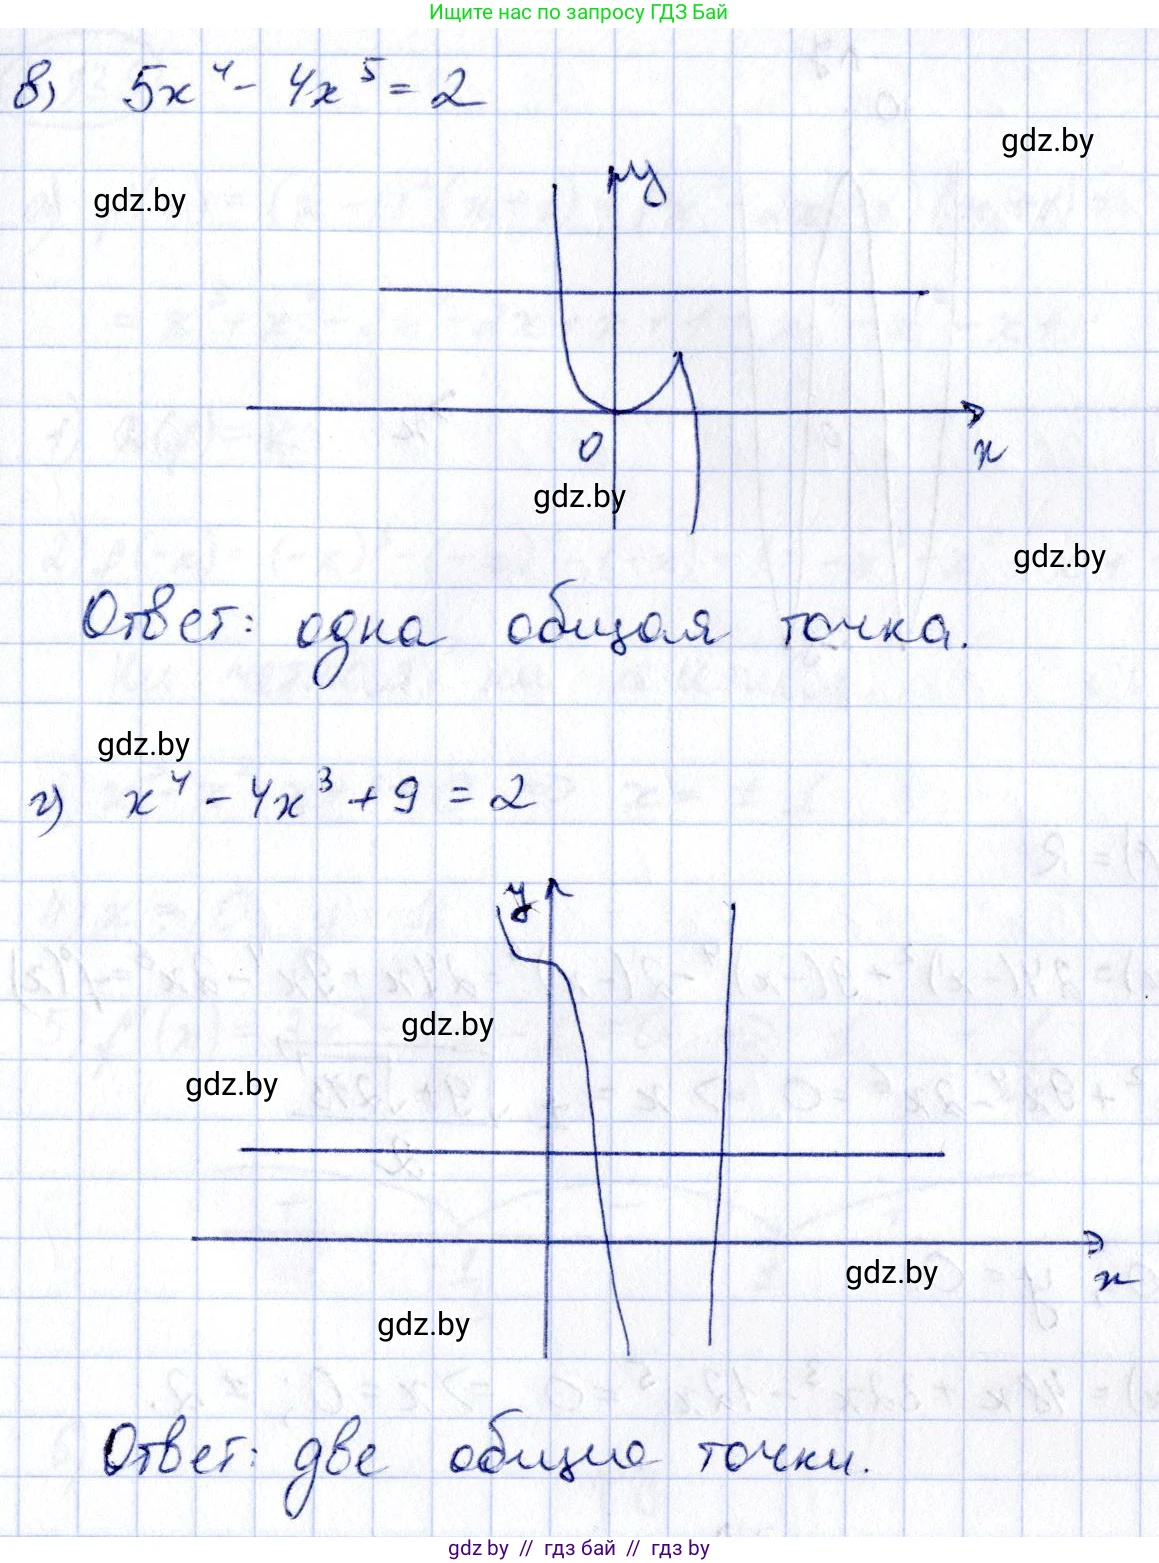 Ищите нас по запросу ГДЗ Бай
в) 5x⁴ - 4x⁵ = 2
gdz.by
gdz.by
y
0
x
gdz.by
gdz.by
Ответ: одна общая точка.
gdz.by
г) x⁴ - 4x³ + 9 = 2
y
gdz.by
gdz.by
gdz.by
x
gdz.by
Ответ: две общие точки.
gdz.by // гдз бай // гдз by